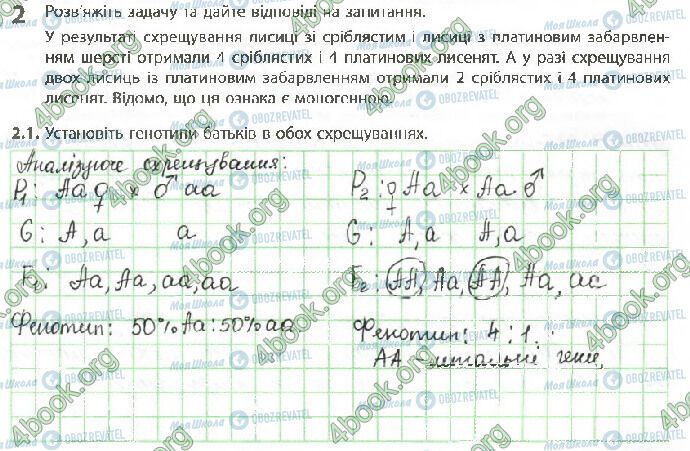 2 Розв'яжіть задачу та дайте відповіді на запитання.
У результаті схрещування лисиці зі сріблястим і лисиці з платиновим забарвлен-
ням шерсті отримали 4 сріблястих і 4 платинових лисенят. А у разі схрещування
двох лисиць із платиновим забарвленням отримали 2 сріблястих і 4 платинових
лисенят. Відомо, що ця ознака є моногенною.
2.1. Установіть генотипи батьків в обох схрещуваннях.
Аналізуюче схрещування:
P₁: Aa ♀ × ♂ aa
P₂: ♀ Aa × Aa ♂
G: A, a a
G: A, a A, a
F₁: Aa, Aa, aa, aa
F₂: AA, Aa, AA, Aa, aa
Фенотип: 50% Aa : 50% aa
Фенотип: 4 : 1.
AA - летальні гени.